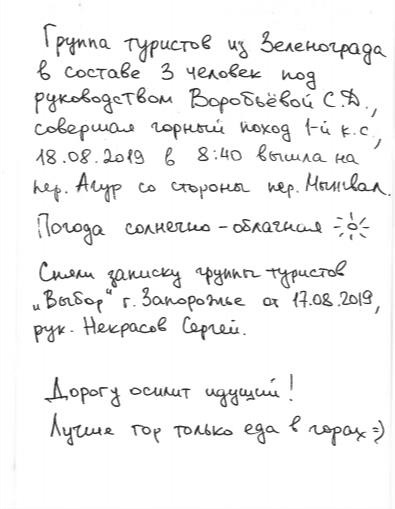 Группа туристов из Зеленограда
в составе 3 человек под
руководством Воробьёвой С.Д.,
совершая горный поход 1-й к.с.,
18.08.2019 в 8:40 вышла на
пер. Агур со стороны пер. Мынвал.
Погода солнечно-облачная
Сняли записку группы туристов
„Выбор" г. Запорожье от 17.08.2019,
рук. Некрасов Сергей.
Дорогу осилит идущий!
Лучше гор только еда в горах =)